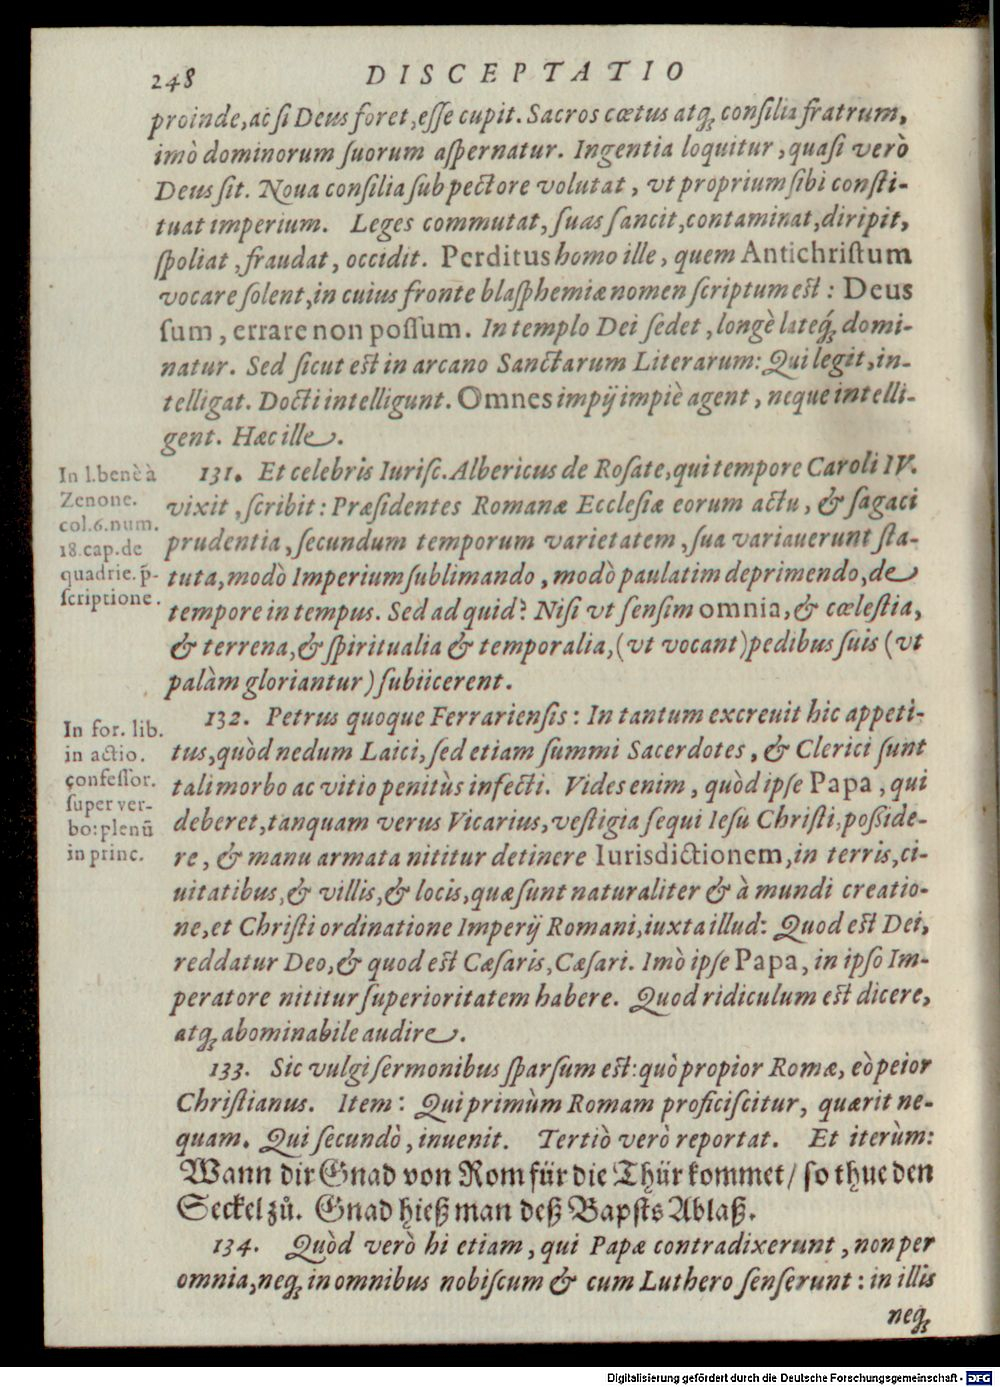 248 DISCEPTATIO
proinde, ac si Deus foret, esse cupit. Sacros cœtus atq; consilia fratrum,
imò dominorum suorum aspernatur. Ingentia loquitur, quasi verò
Deus sit. Noua consilia sub pectore volutat, vt proprium sibi consti-
tuat imperium. Leges commutat, suas sancit, contaminat, diripit,
spoliat, fraudat, occidit. Perditus homo ille, quem Antichristum
vocare solent, in cuius fronte blasphemiæ nomen scriptum est: Deus
sum, errare non possum. In templo Dei sedet, longè lateq́; domi-
natur. Sed sicut est in arcano Sanctarum Literarum: Qui legit, in-
telligat. Docti intelligunt. Omnes impij impiè agent, neque intelli-
gent. Hæc ille.
131. Et celebris Iurisc. Albericus de Rosate, qui tempore Caroli IV.
vixit, scribit: Præsidentes Romanæ Ecclesiæ eorum actu, & sagaci
prudentia, secundum temporum varietatem, sua variauerunt sta-
tuta, modò Imperium sublimando, modò paulatim deprimendo, de
tempore in tempus. Sed ad quid? Nisi vt sensim omnia, & cœlestia,
& terrena, & spiritualia & temporalia, (vt vocant) pedibus suis (vt
palàm gloriantur) subiicerent.
In l. benè à
Zenone.
col. 6. num.
18. cap. de
quadrie. p̄-
scriptione.
132. Petrus quoque Ferrariensis: In tantum excreuit hic appeti-
tus, quòd nedum Laici, sed etiam summi Sacerdotes, & Clerici sunt
tali morbo ac vitio penitùs infecti. Vides enim, quòd ipse Papa, qui
deberet, tanquam verus Vicarius, vestigia sequi Iesu Christi, posside-
re, & manu armata nititur detinere Iurisdictionem, in terris, ci-
uitatibus, & villis, & locis, quæ sunt naturaliter & à mundi creatio-
ne, et Christi ordinatione Imperij Romani, iuxta illud: Quod est Dei,
reddatur Deo, & quod est Cæsaris, Cæsari. Imò ipse Papa, in ipso Im-
peratore nititur superioritatem habere. Quod ridiculum est dicere,
atq; abominabile audire.
In for. lib.
in actio.
confessor.
super ver-
bo: plenū
in princ.
133. Sic vulgi sermonibus sparsum est: quò propior Romæ, eò peior
Christianus. Item: Qui primùm Romam proficiscitur, quærit ne-
quam. Qui secundò, inuenit. Tertiò verò reportat. Et iterùm:
Wann dir Gnad von Rom für die Thür kommet / so thue den
Seckel zů. Gnad hieß man deß Bapsts Ablaß.
134. Quòd verò hi etiam, qui Papæ contradixerunt, non per
omnia, neq; in omnibus nobiscum & cum Luthero senserunt: in illis
neq;
Digitalisierung gefördert durch die Deutsche Forschungsgemeinschaft - DFG